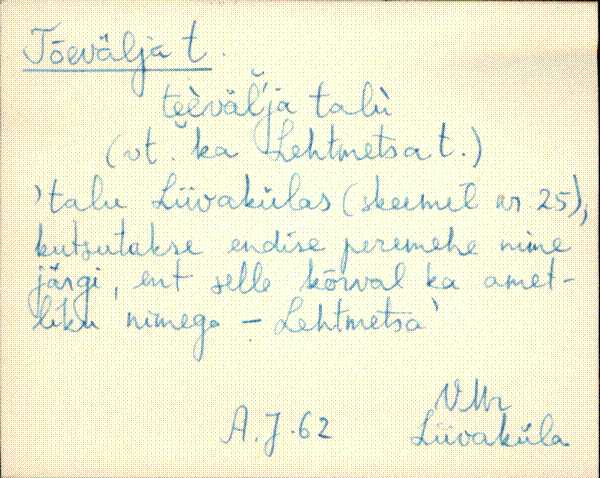 Tõevälja t.
tèe̬väl'jà talù
(vt. ka Lehtmetsa t.)
'talu Liivakülas (skeemil nr 25),
kutsutakse endise peremehe nime
järgi, ent selle kõrval ka amet-
liku nimega – Lehtmetsa'
VMr
A.J. 62
Liivaküla